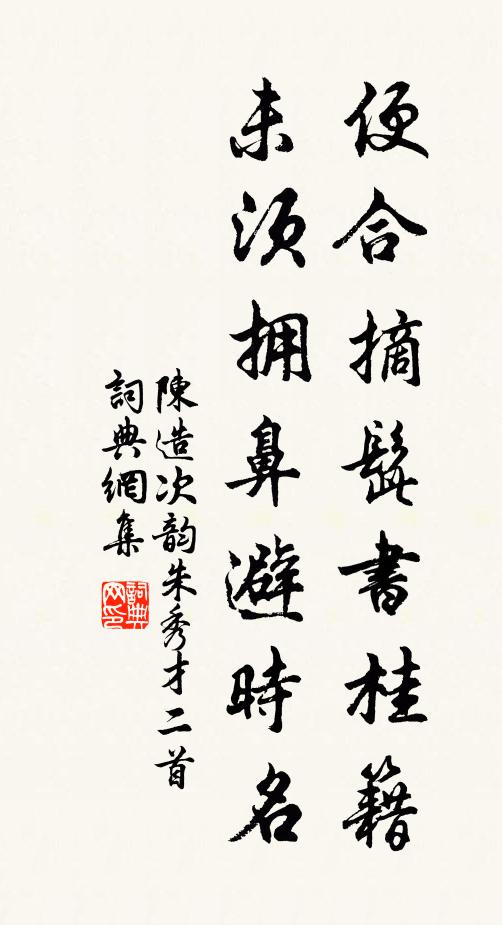 便合摘髭書桂籍
未須拥鼻避時名
陳造次韵朱秀才二首
詞典網集
詞典网印